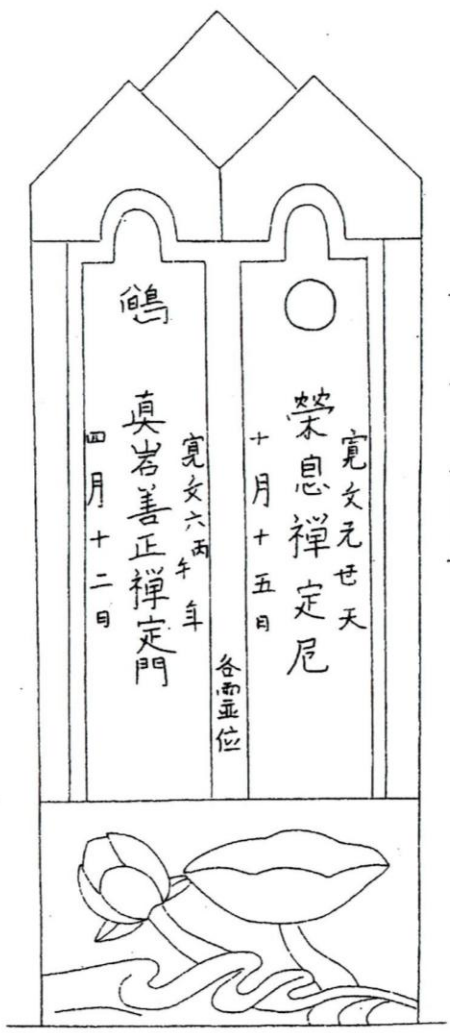 寛文元丑天
榮息禪定尼
十月十五日
各霊位
寛文六丙午年
眞岩善正禪定門
四月十二日